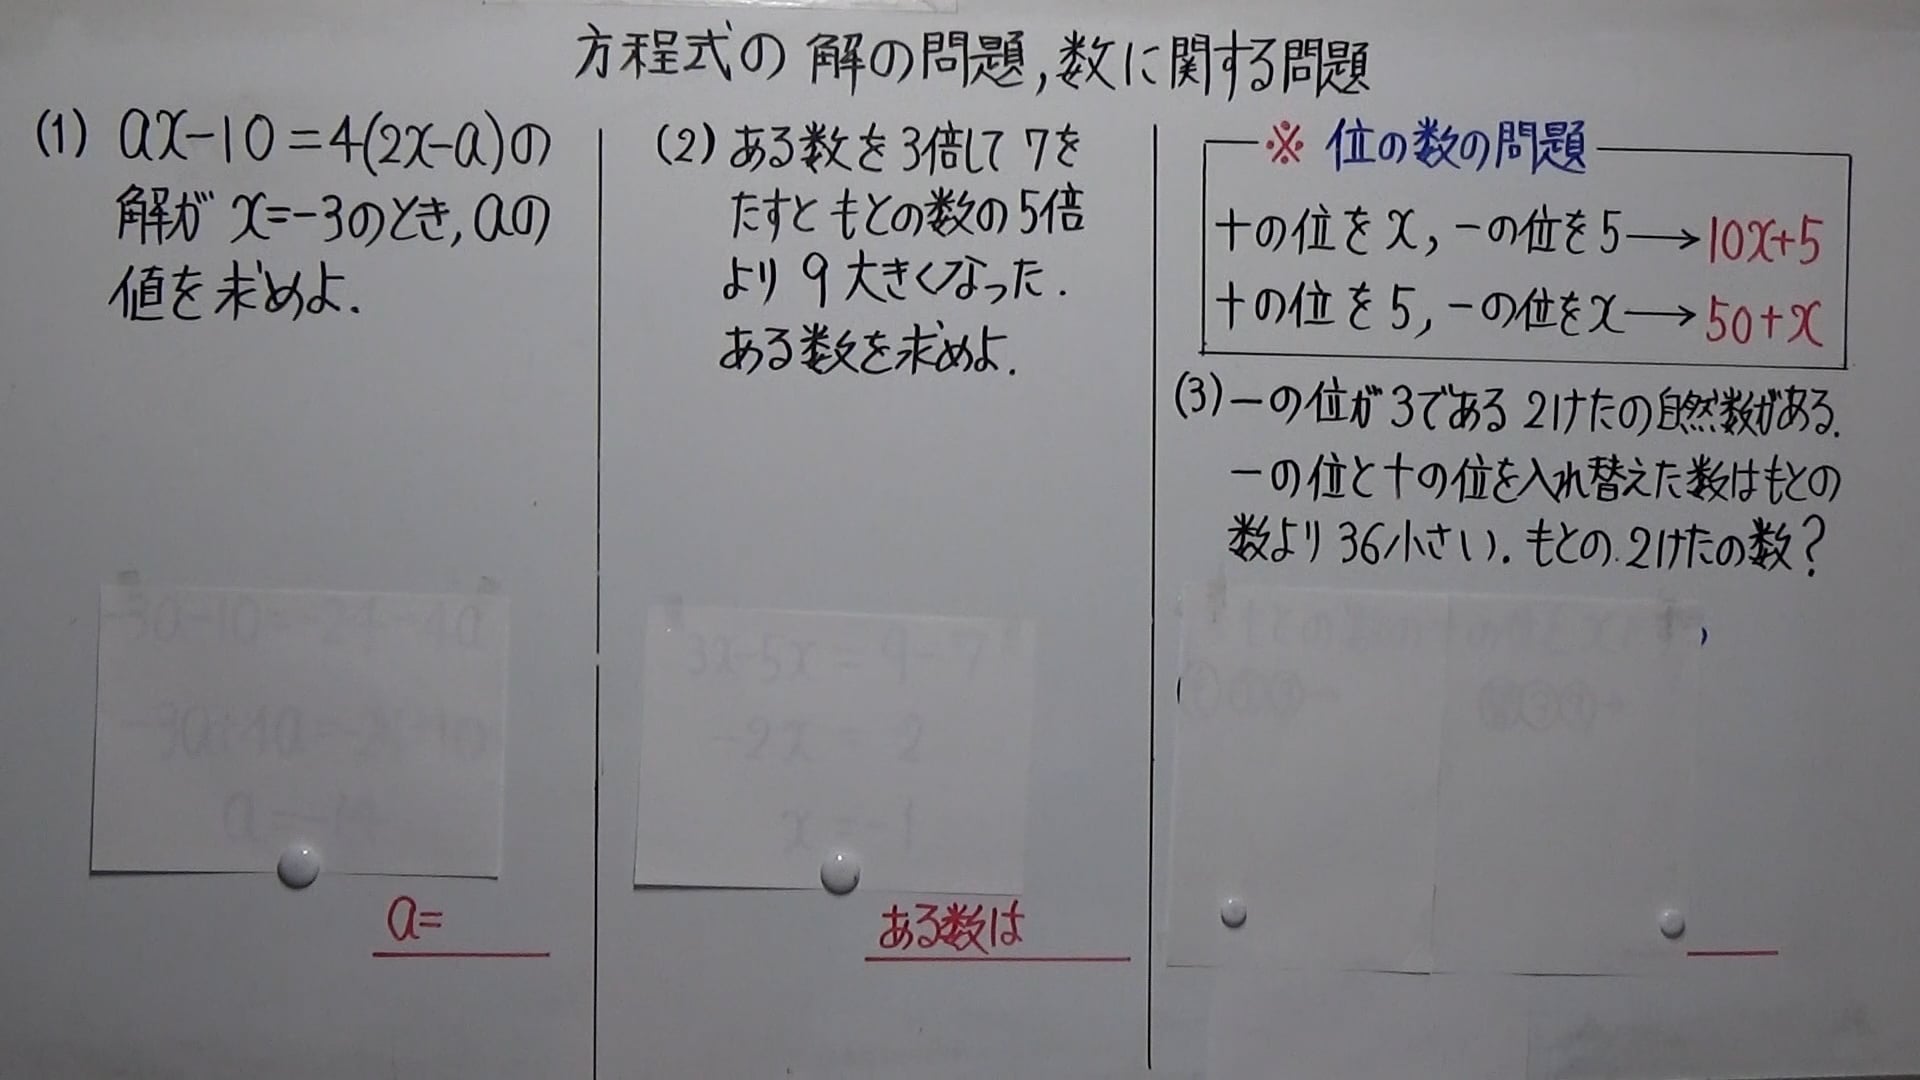 方程式の解の問題,数に関する問題
(1) ax-10=4(2x-a)の
解がx=-3のとき,aの
値を求めよ.
-3a-10=-24-4a
-3a+4a=-24+10
a=-14
a=
(2) ある数を3倍して7を
たすともとの数の5倍
より9大きくなった.
ある数を求めよ.
3x-5x=9-7
-2x=2
x=-1
ある数は
※ 位の数の問題
十の位をx,一の位を5→10x+5
十の位を5,一の位をx→50+x
(3)一の位が3である2けたの自然数がある.
一の位と十の位を入れ替えた数はもとの
数より36小さい.もとの2けたの数?